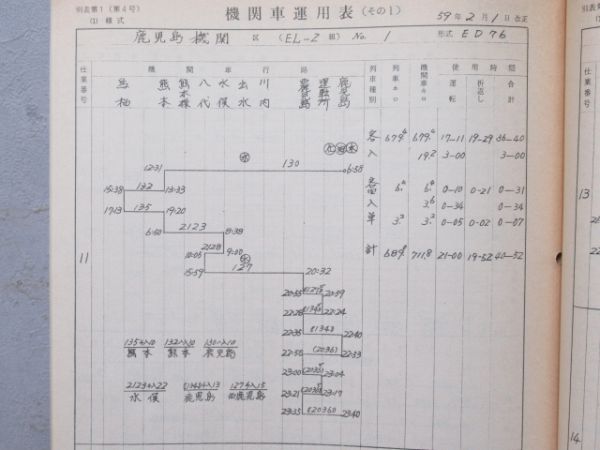 別表第1（第4号）
(1) 様式
機関車運用表（その1）
59年2月1日改正
鹿児島機関 区 (EL-2組) No. 1
形式 ED76
仕業番号
機関車行路
列車種別
列車キロ
機関車キロ
使用時間
運転
折返し
合計
鳥栖
熊本
八代
水俣
出水
川内
鹿児島
客 679.4 679.4 17-11 19-29 36-40
入 19.2 3-00 3-00
0-10 0-21 0-31
入 3.6 0-34
単 3.2 3.2 0-05 0-02 0-07
計 711.8 21-00 19-52 40-52
11
12:31
130
6:58
15:38
132
13:33
17:13
135
19:20
6:50
2123
8:38
2128
9:00
10:05
15:59
127
20:32
20:59
22:28
22:24
22:35
22:40
22:50
(2036)
22:53
23:00
23:04
23:21
23:17
23:35
(2036)
23:40
熊本
熊本
鹿児島
水俣
鹿児島
西鹿児島
13
14